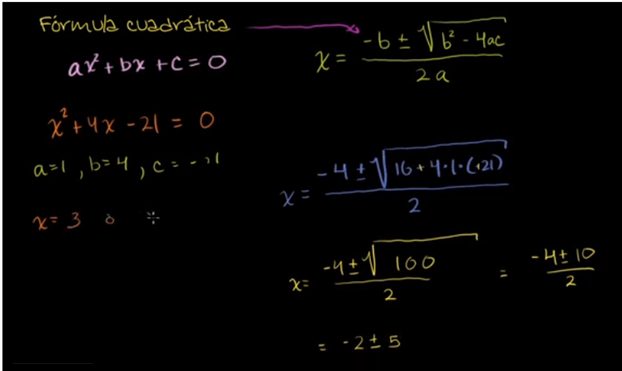 Fórmula cuadrática
ax² + bx + c = 0
x = (-b ± √(b² - 4ac)) / 2a
x² + 4x - 21 = 0
a=1, b=4, c = -21
x = (-4 ± √(16 + 4·1·(+21))) / 2
x = 3 o
x = (-4 ± √100) / 2 = (-4 ± 10) / 2
= -2 ± 5